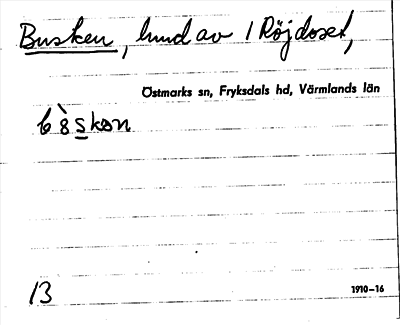 Busken, hund av 1 Röjdoset,
Östmarks sn, Fryksdals hd, Värmlands län
13
1910-16